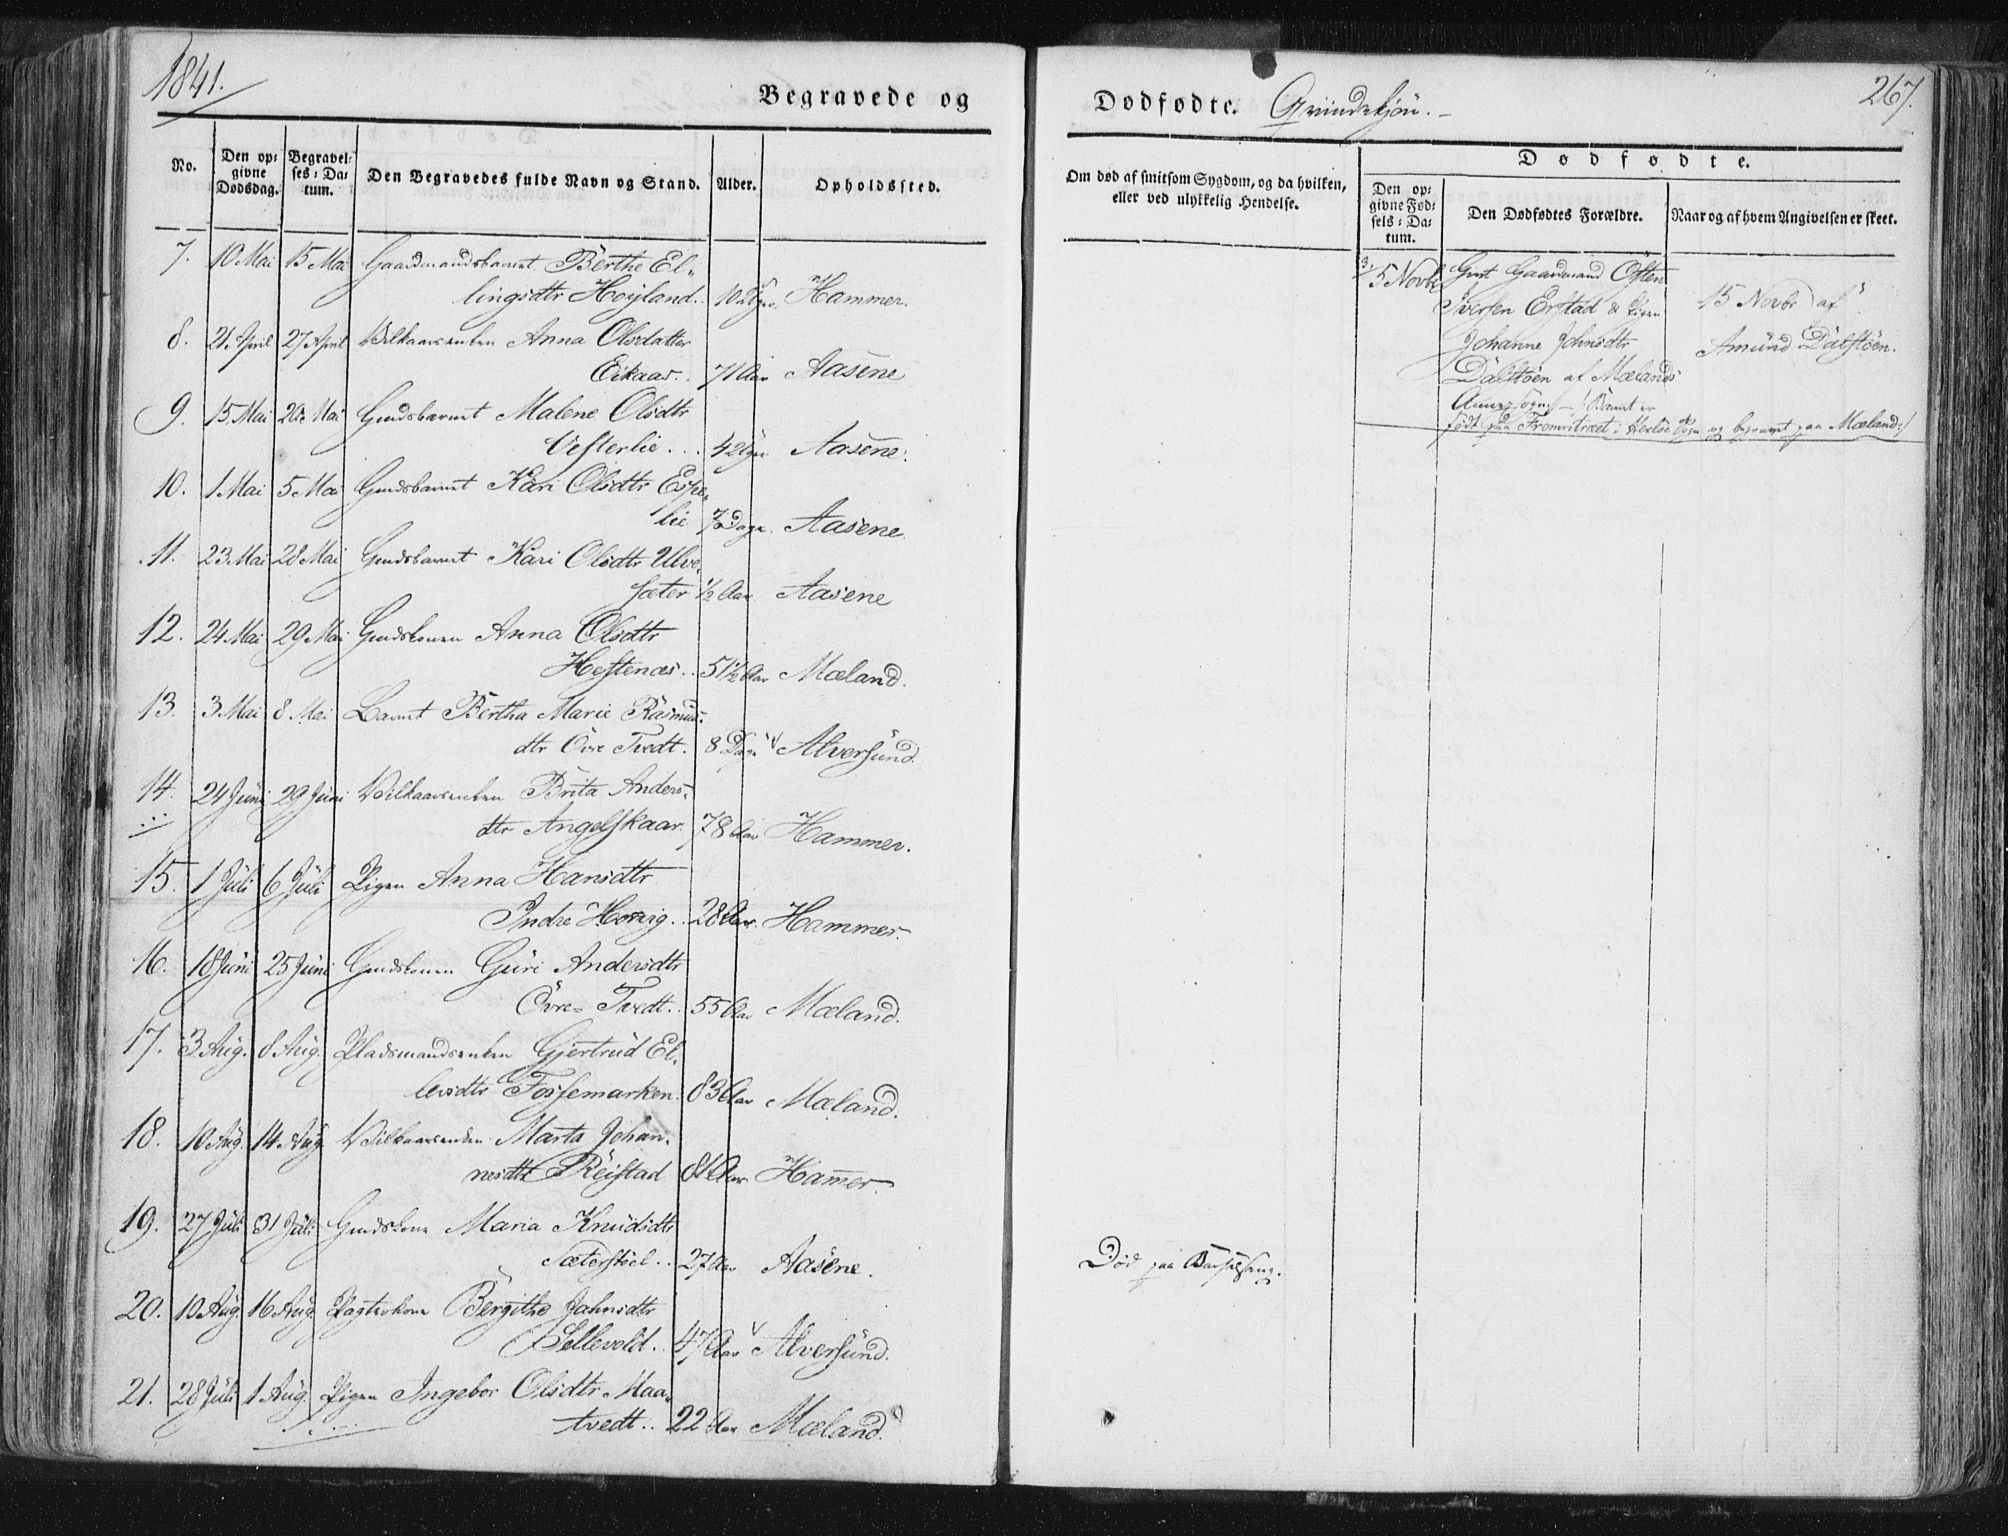 1841.
Begravede og
Dødfødte. Qvindekjøn.
267.
No.
Den opgivne Dødsdag.
Begravelses-Datum.
Den Begravedes fulde Navn og Stand.
Alder.
Opholdssted.
Om død af smitsom Sygdom, og da hvilken,
eller ved ulykkelig Hendelse.
Dødfødte.
Den opgivne Fødsels-Datum.
Den Dødfødtes Forældre.
Naar og af hvem Angivelsen er skeet.
7. 10 Mai 15 Mai Gaardmandsbarnet Berthe El-
lingsdtr Høyland. 10 Hammer.
8. 21 April 27 April Vilkaarsenken Anna Olsdatter
Eikaas.. 71 Aar Aasene
9. 15 Mai 20 Mai Gmdsbarnet Malene Olsdtr
Vesterlie... 4 Aasene.
10. 1 Mai 5 Mai Gmdsbarnet Kari Olsdtr Espe-
lie 7 Dage. Aasene
11. 23 Mai 28 Mai Gmdsbarnet Kari Olsdtr Ulve-
sæter ½ Aar Aasene
12. 24 Mai 29 Mai Gmdskonen Anna Olsdtr
Hestenæs.. 51½ Aar Mæland.
13. 3 Mai 8 Mai Barnet Bertha Marie Rasmus-
dtr Övre Tvedt. 8 Dage Alversund.
14. 24 Juni 29 Juni Vilkaarsenken Brita Anders-
dtr Angelskaar. 78 Aar Hammer.
15. 1 Juli 6 Juli Pigen Anna Hansdtr
Indre Hovvig.. 28 Aar. Hammer.
16. 18 Juni 25 Juni Gmdskonen Guri Andersdtr
Övre Tvedt.. 55 Aar Mæland.
17. 3 Aug. 8 Aug. Pladsmandsenken Gjertrud El-
lersdtr Fossemarken. 83 Aar Mæland.
18. 10 Aug. 14 Aug Vilkaarsenken Marta Johan-
nesdtr Reistad 81 Aar Hamer.
19. 27 Juli 31 Juli Gmdskone Maria Knudsdtr
Sæterstöel.. 27 Aar Aasene. Død paa Barselseng.
20. 10 Aug. 16 Aug. Pagterkone Bergithe Jahnsdtr
Sellevold.. 47 Aar Alversund.
21. 28 Juli 1 Aug. Pigen Ingebor Olsdtr Maa-
tvedt.. 22 Aar Mæland.
3. 5 Novbr Gaardmand Østen
Iversen Erstad & Pigen
Johanne Johnsdtr
Dalstøen af Mælands
Annexsogn /: Barnet er
født paa Fromritræet i Herlöe Sogn og begravet paa Mæland :/
15 Novbr af
Amund Dalstøen.